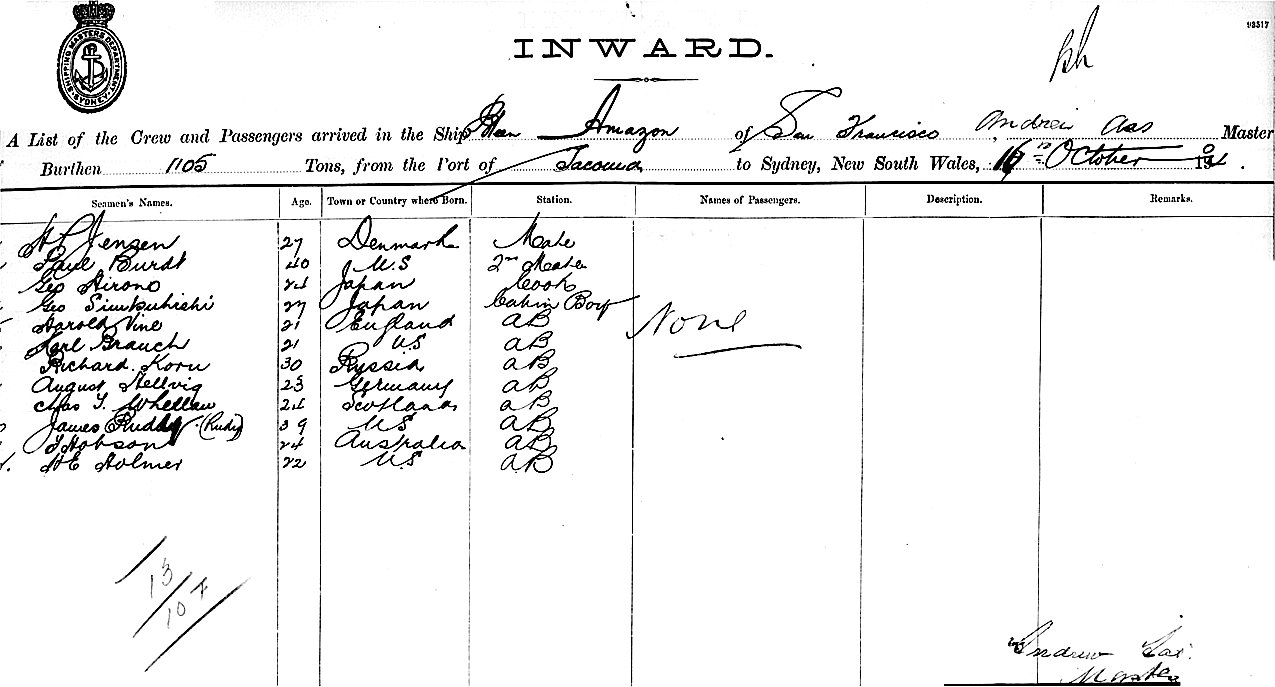 SHIPPING MASTERS DEPARTMENT SYDNEY
93517
INWARD.
A List of the Crew and Passengers arrived in the Ship Amazon of San Francisco, Andrew Aas Master
Burthen 1105 Tons, from the Port of Tacoma to Sydney, New South Wales, October
Seamen's Names. Age. Town or Country where Born. Station. Names of Passengers. Description. Remarks.
Jensen 27 Denmark Mate
Paul Burdt 40 U.S 2nd Mate
Geo Hirono 24 Japan Cook
Geo Simkuhishi 27 Japan Cabin Boy
Harold Vine 21 England aB
None
Karl Brauch 21 US aB
Richard Korn 30 Russia aB
August Hellvig 23 Germany aB
Chas T. Whellan 24 Scotland aB
James Ruddy (Rudy) 39 US aB
T Hobson 24 Australia aB
HE Holmer 22 US aB
13
10 +
Andrew Aas.
Master